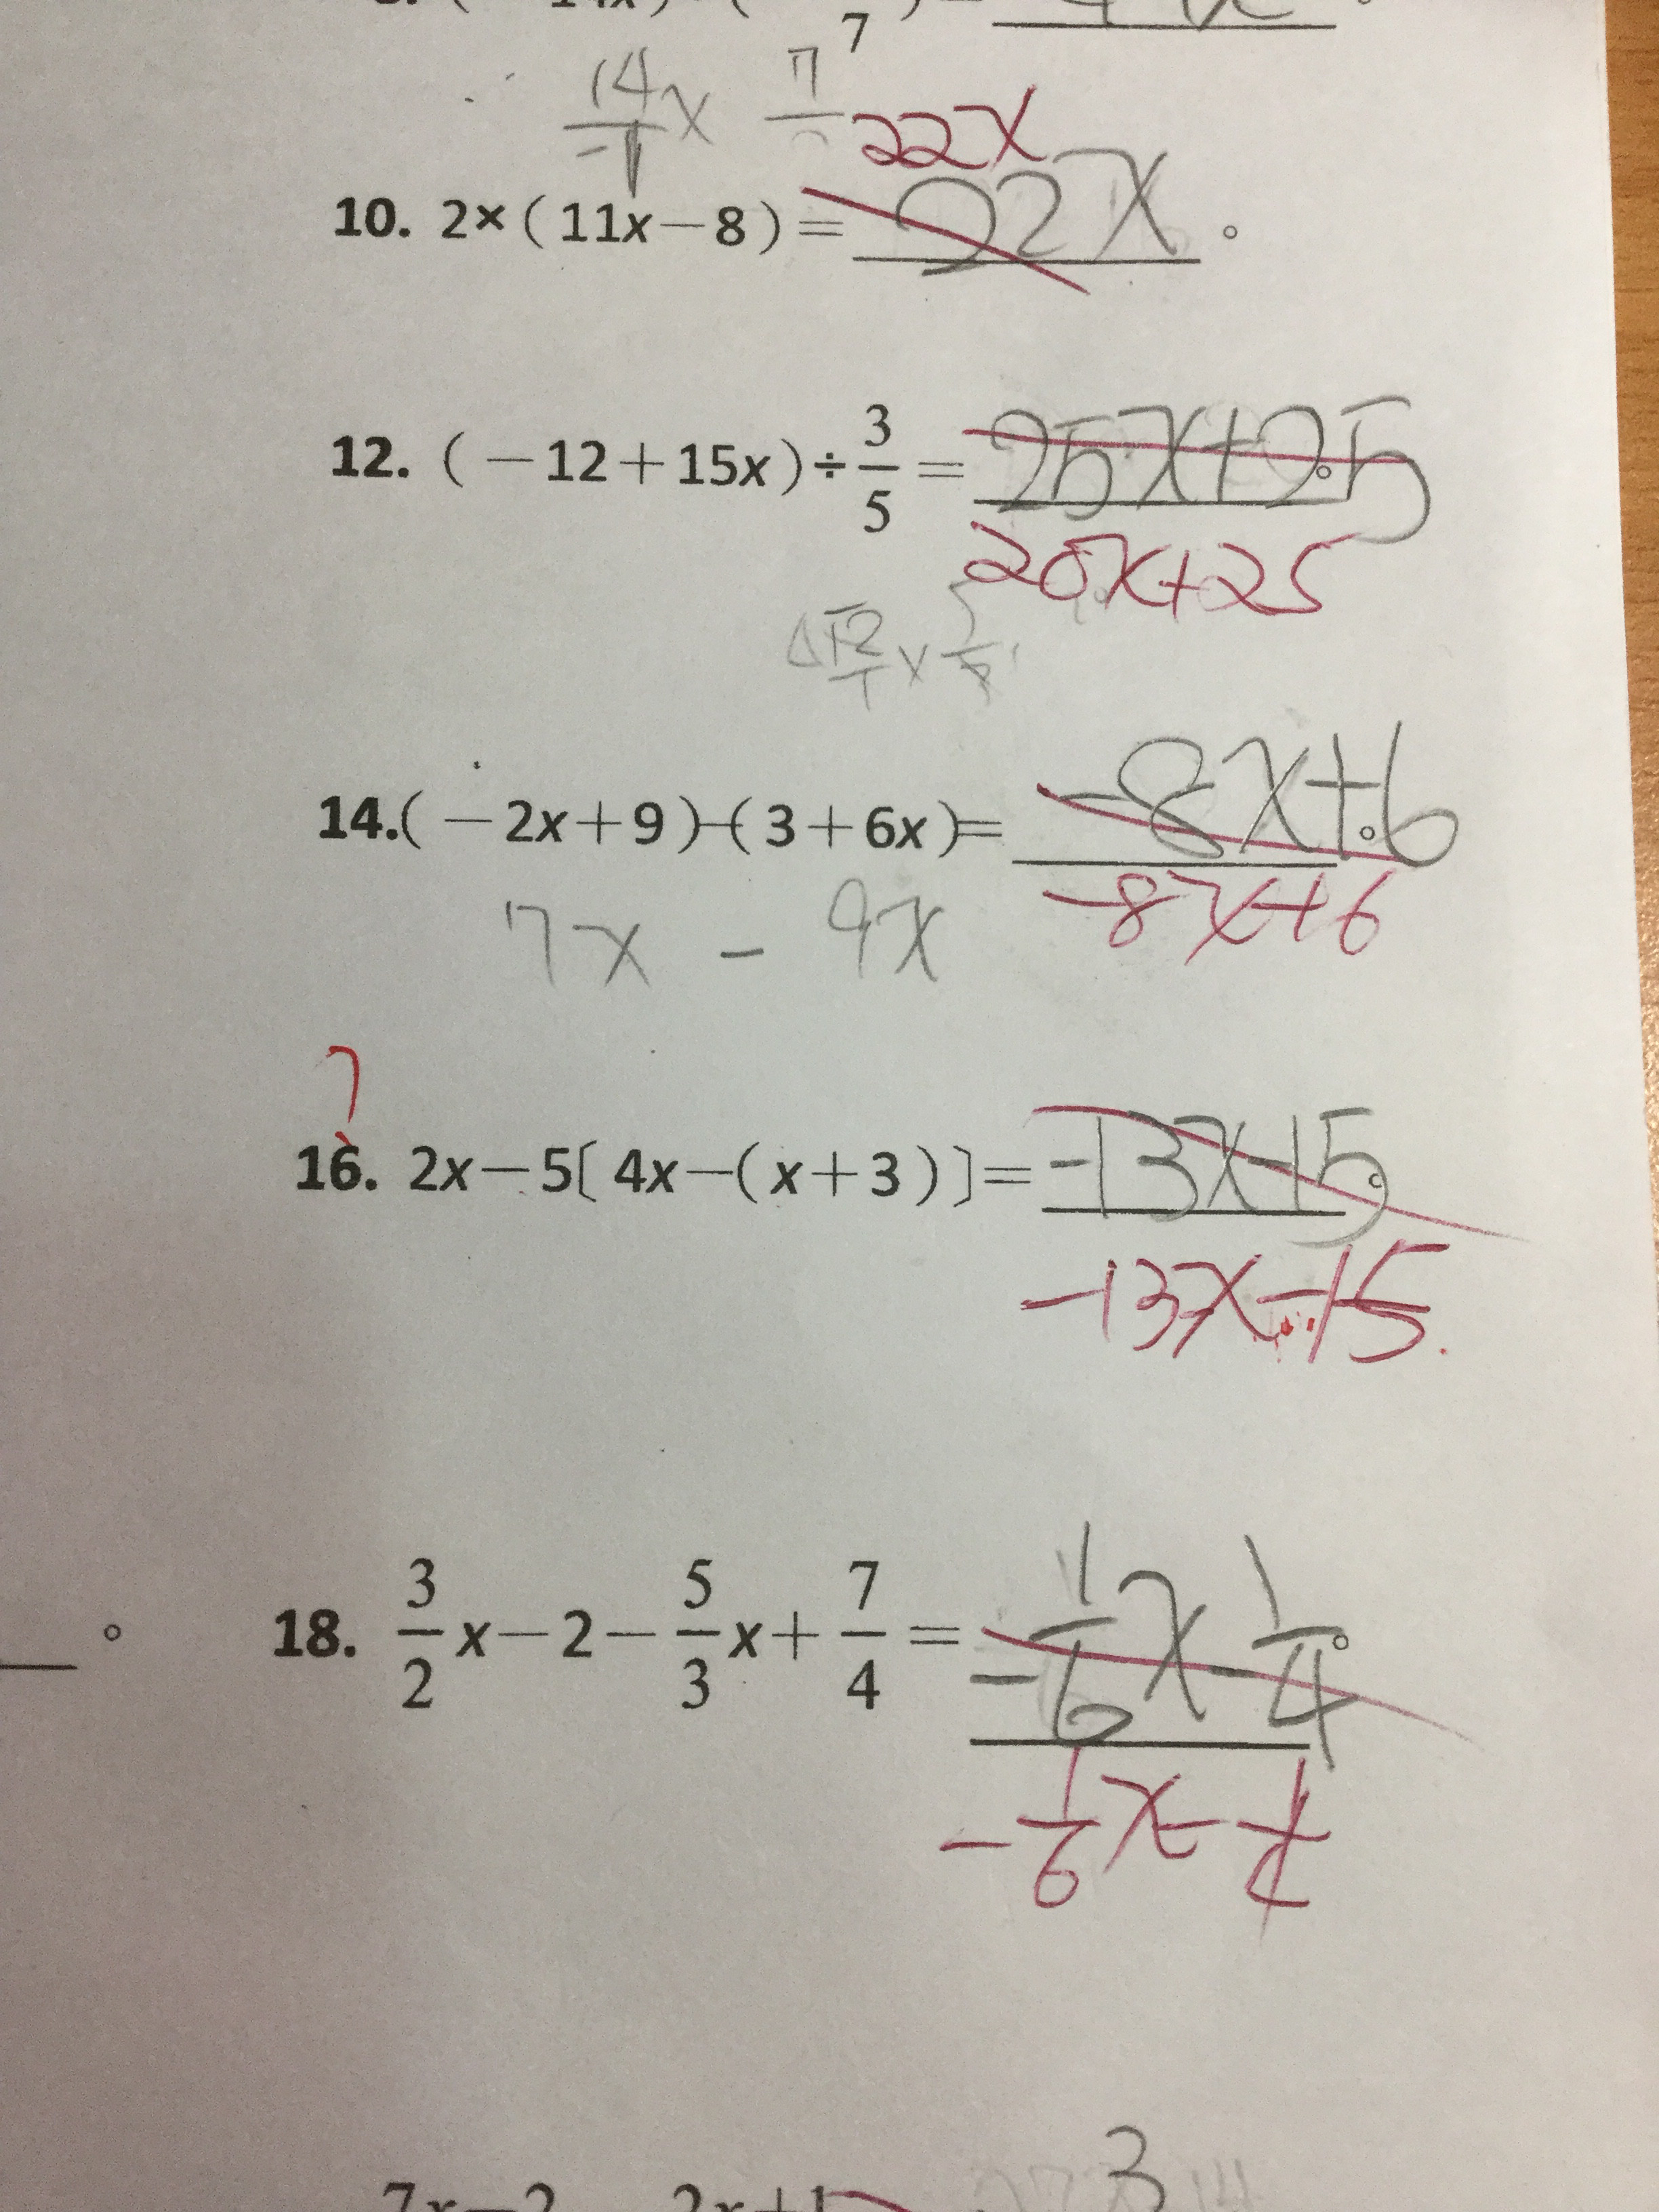 7
14/-1 x 7
22x
10. 2×(11x－8)＝22x。
12. (－12＋15x)÷3/5＝25x+25。
20x+25
14.(－2x＋9)－(3＋6x)＝-8x+6。
-8x+6
7x - 9x
?
16. 2x－5〔4x－(x＋3)〕＝-13x-15。
-13x-15.
。 18. 3/2 x－2－5/3 x＋7/4＝-1/6 x-1/4。
-1/6 x-1/4
3
7x－2 2x＋1